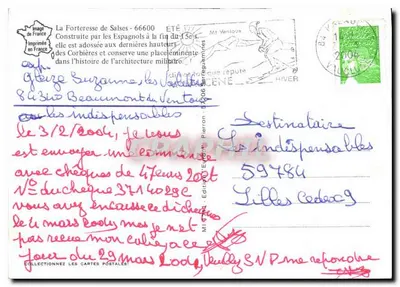 Image de France
Imprimée en France
La Forteresse de Salses - 66600
Construite par les Espagnols à la fin du 15e s.
elle est adossée aux dernières hauteurs
des Corbières et conserve une place éminente
dans l'histoire de l'architecture militaire.
ÉTÉ
Mt Ventoux
HIVER
2004
exp.
Suzanne, les
84340 Beaumont du Ventoux
les indispensables
le 3/2/2004, je vous
est envoyer un commence
avec chèques de 47 euros 20 et
No du chèque 3714029C
vous avez encaisse ce chèque
le 4 mars 2004, mois je n'et
pas recue mon colie, a ce
jour du 29 mars 2004, Veuilly S V P me repondre
Destinataire
Les indispensables
59784
Lilles Cedex 9
COLLECTIONNEZ LES CARTES POSTALES